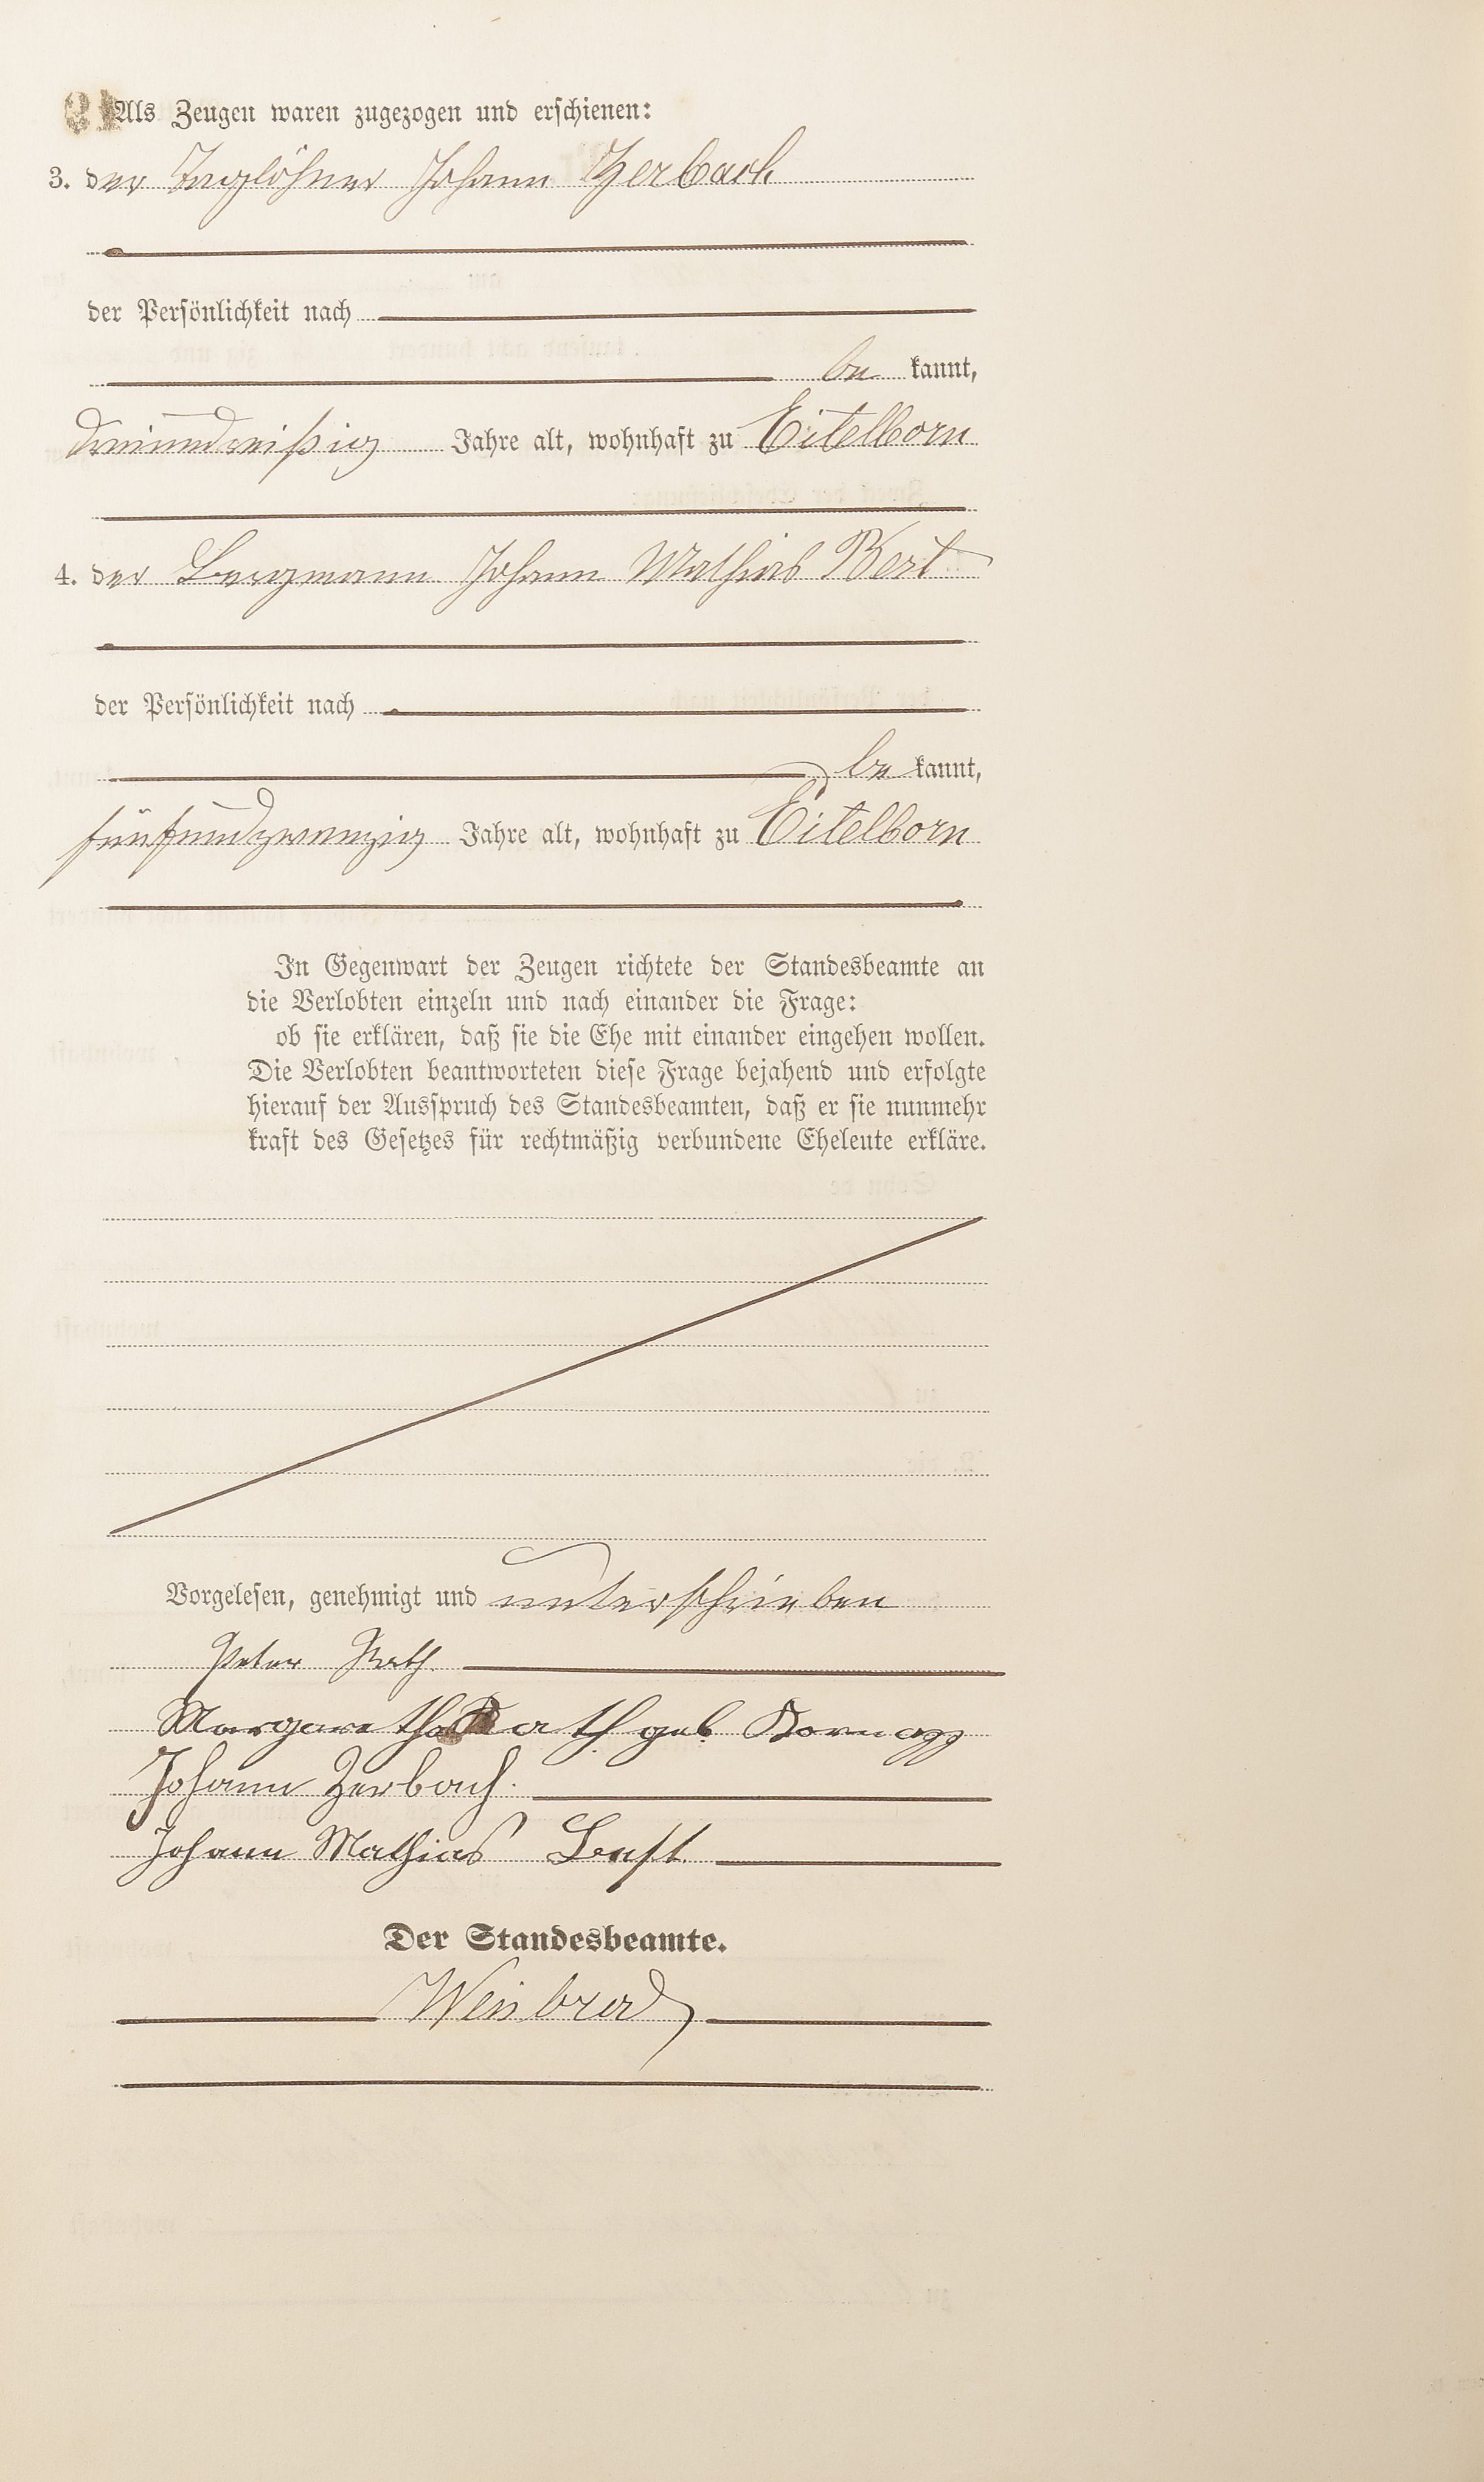 Als Zeugen waren zugezogen und erschienen:
3. der Taglöhner Johann Zerbach
der Persönlichkeit nach
be kannt,
dreiunddreißig Jahre alt, wohnhaft zu Eitelborn
4. der Bergmann Johann Mathias
der Persönlichkeit nach
be kannt,
fünfundzwanzig Jahre alt, wohnhaft zu Eitelborn
In Gegenwart der Zeugen richtete der Standesbeamte an
die Verlobten einzeln und nach einander die Frage:
ob sie erklären, daß sie die Ehe mit einander eingehen wollen.
Die Verlobten beantworteten diese Frage bejahend und erfolgte
hierauf der Ausspruch des Standesbeamten, daß er sie nunmehr
kraft des Gesetzes für rechtmäßig verbundene Eheleute erkläre.
Vorgelesen, genehmigt und unterschrieben
Peter Rath.
Margaretha Rath geb.
Johann Zerbach.
Johann Mathias
Der Standesbeamte.
Weisbrod